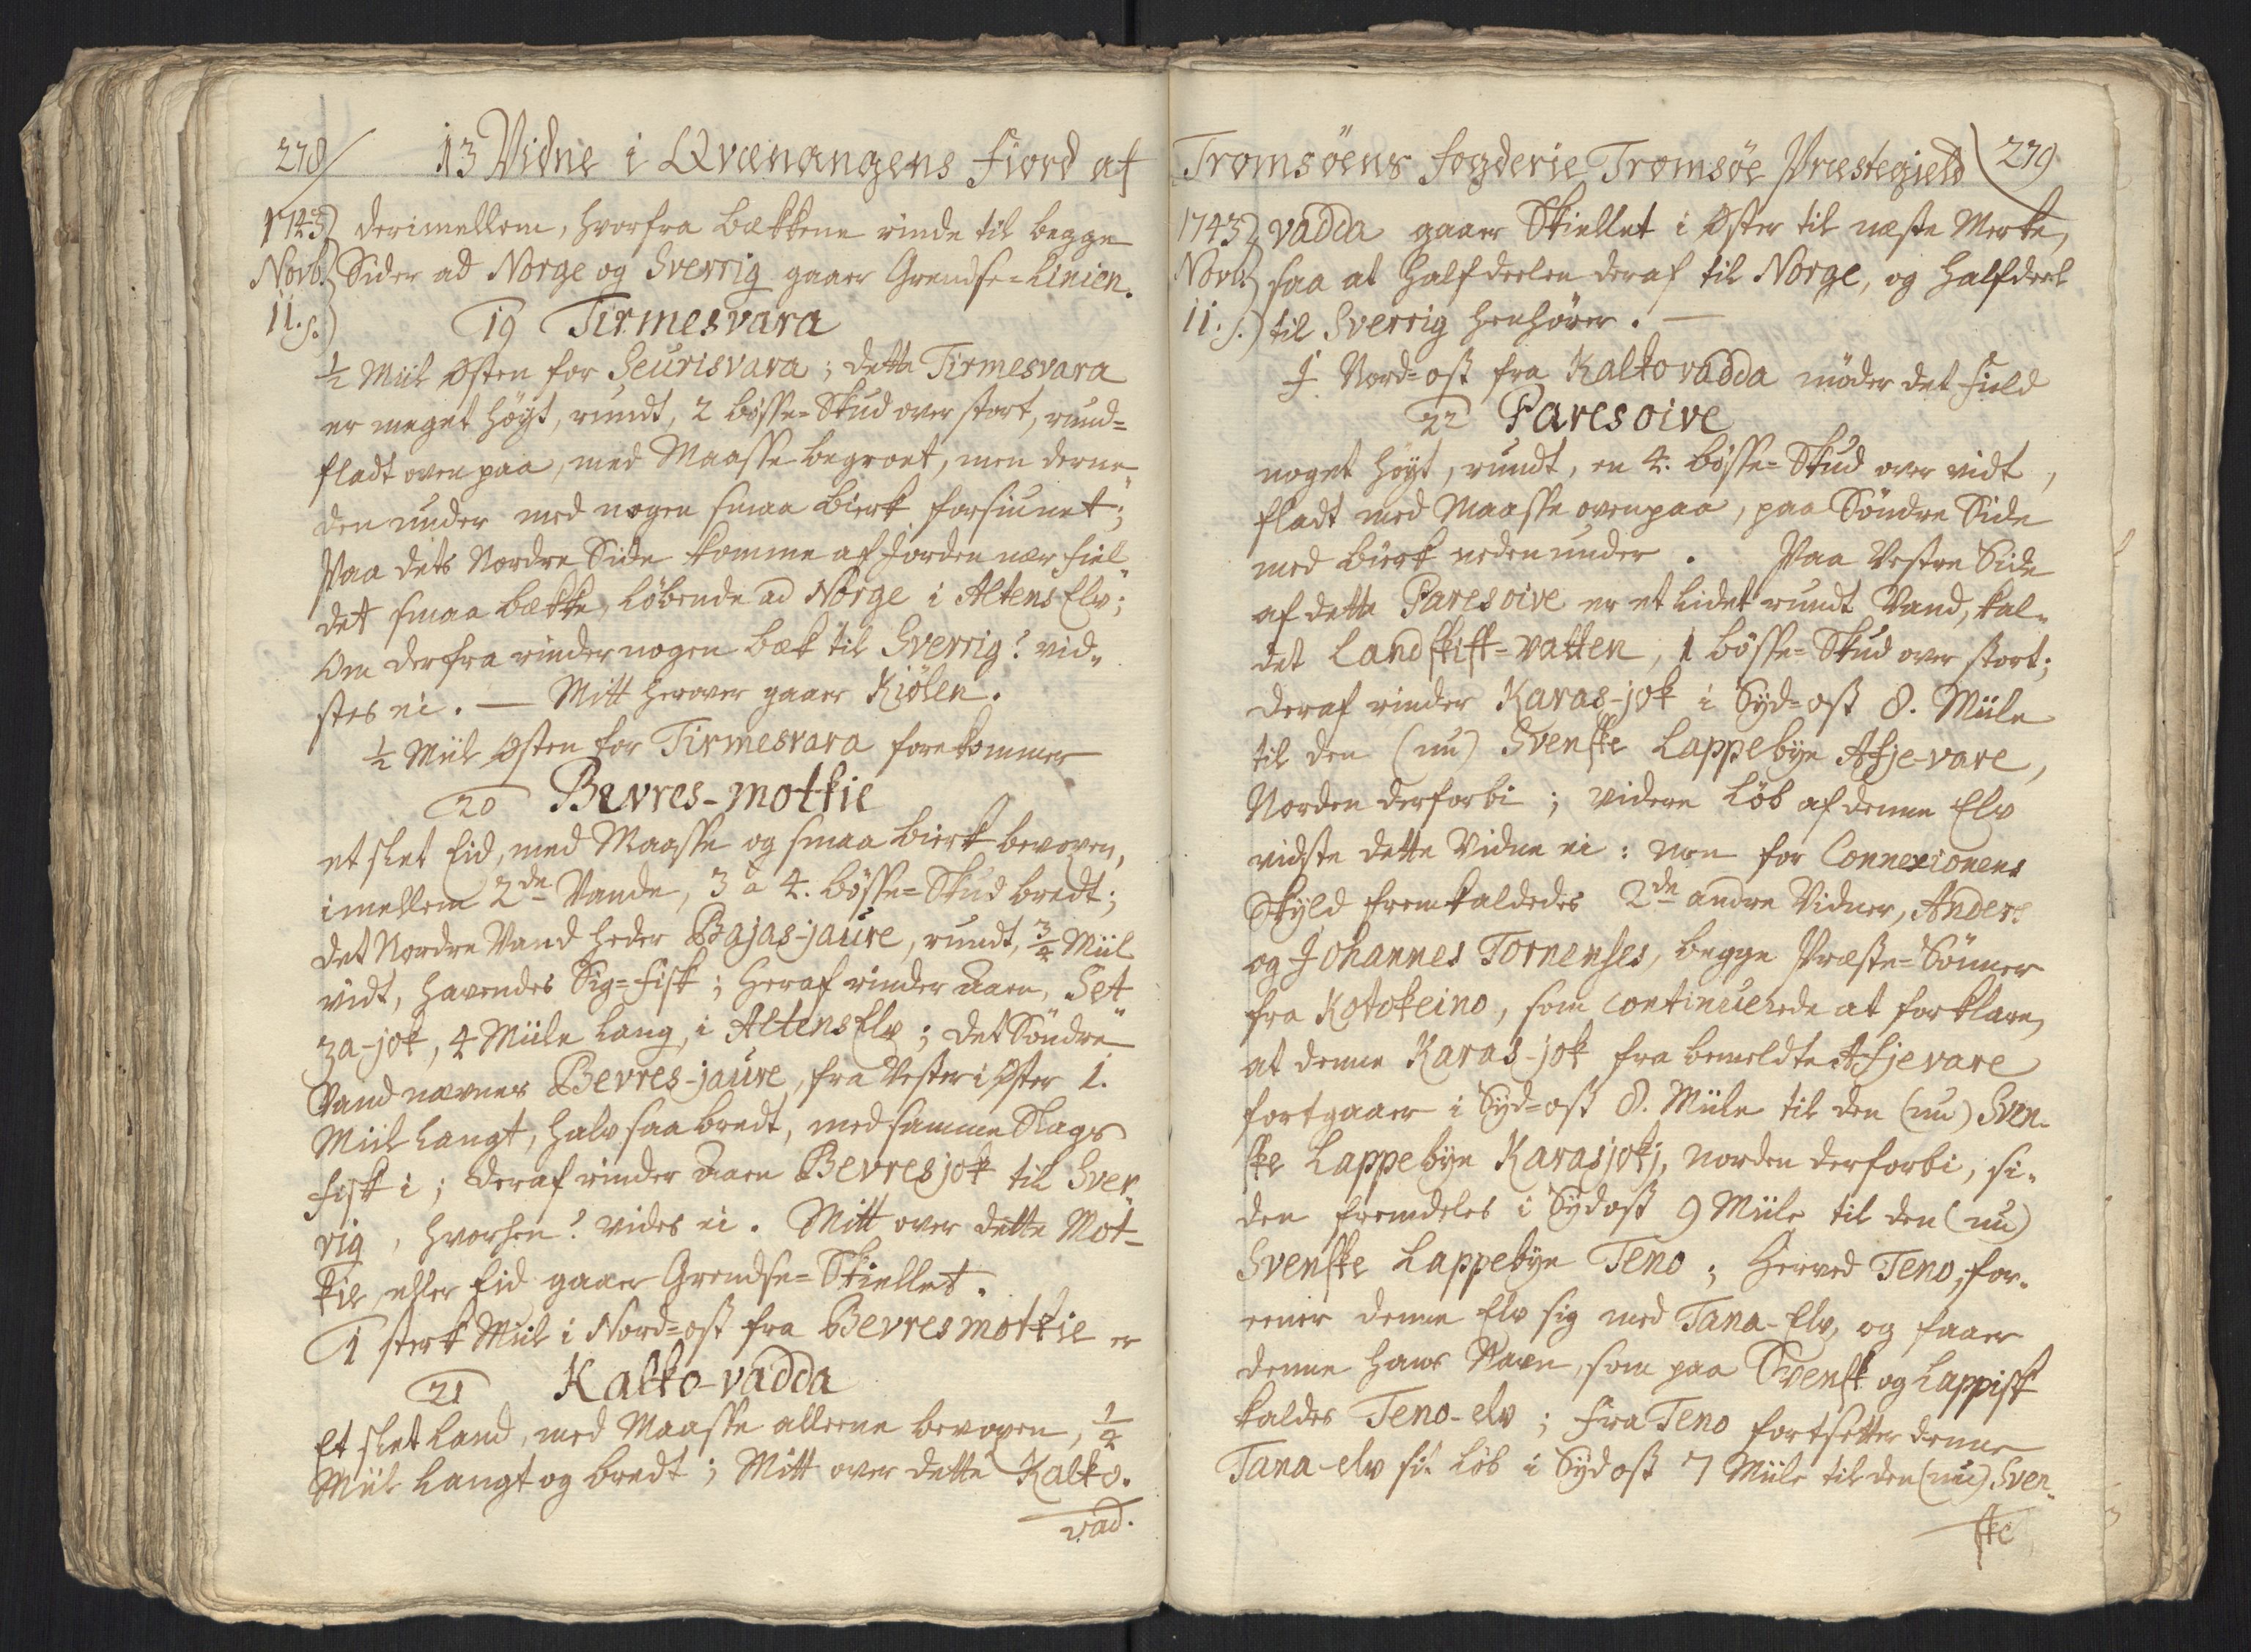 278/ 13 Vidne i Qvænangens Fiord af
1743) derimellem, hvorfra bækkene rinde til begge
Novb.) Sider ad Norge og Sverrig gaaer Grendse=Linien.
11. s.) 19 Tirmesvara
½ Miil Østen for Seurisvara; dette Tirmesvara
er meget høyt, rundt, 2 bøsse=Skud over stort, rund=
fladt oven paa, med Maasse begroet, men derne„
den under med nogen smaa Birk forsiunet;
Paa dets Nordre Side komme af Jorden nær Fiel„
det smaa bække, løbende ad Norge i Altens Elv;
Om derfra rinder nogen bæk til Sverrig? vid„
stes ei. — Mitt herover gaaer Kiølen.
½ Miil Østen for Tirmesvara forekommer
20 Bevres-motkie
et slet Eid, med Maasse og smaa Birk bevoxen,
imellem 2de Vande, 3 a 4. bøsse=Skud bredt;
det Nordre Vand heder Bajas-jaure, rundt, ¾ Miil
vidt, havendes Sig=Fisk; heraf rinder Aaen, Set„
za-jok, 4 Miile lang, i Altens Elv; det Søndre
Vand nævnes Bevres-jaure, fra Vester i Øster 1.
Miil langt, halv saa bredt, med samme Slags
Fisk i; deraf rinder Aaen Bevresjok til Sver„
rig, hvorhen? vides ei. Mitt over dette Mot-
kie, eller Eid gaaer Grendse=Skiellet.
1 sterk Miil i Nord=ost fra Bevresmotkie er
21 Kalko-vadda
Et slet Land, med Maasse alleene bevoxen, ¼
Miil langt og bredt; Mitt over dette Kalko.
vad.
Tromsöens Fogderie Tromsöe Præstegield 279.
1743) vadda gaaer Skiellet i Øster til næste Merke,
Novb.) saa at halfdeelen deraf til Norge, og halfdeel
11. s.) til Sverrig henhører. —
I Nord=ost fra Kalkovadda møder det Field
22 Paresoive
noget høyt, rundt, en 4. bøsse=Skud over vidt,
fladt med Maasse ovenpaa, paa Søndre Side
med Birk nedenunder. Paa Vestre Side
af dette Paresoive er et lidet rundt Vand, kal„
det Landskift=vatten, 1 bøsse=Skud over stort;
deraf rinder Karas-jok i Syd=ost 8. Miile
til den (nu) Svenske Lappebye Afje-vare,
Norden derforbi; videre Løb af denne Elv
vidste dette Vidne ei: Men for Connexionens
Skyld fremkaldedes 2de andre Vidner, Anders
og Johannes Tornenses, begge Præste=Sønner
fra Kotokeino, som continuerede at forklare,
at denne Karas-jok fra bemeldte Afjevare
fortgaaer i Syd=ost 8. Miile til den (nu) Sven„
ske Lappebye Karasjokj, norden derforbi, si„
den fremdeles i Sydost 9 Miile til den (nu)
Svenske Lappebye Teno; Herved Teno, for„
eener denne Elv sig med Tana-Elv, og faaer
denne hans Navn, som paa Svensk og Lappisk
kaldes Teno-elv; fra Teno fortsetter denne
Tana-elv sit Løb i Sydost 7 Miile til den (nu) Sven„
ske